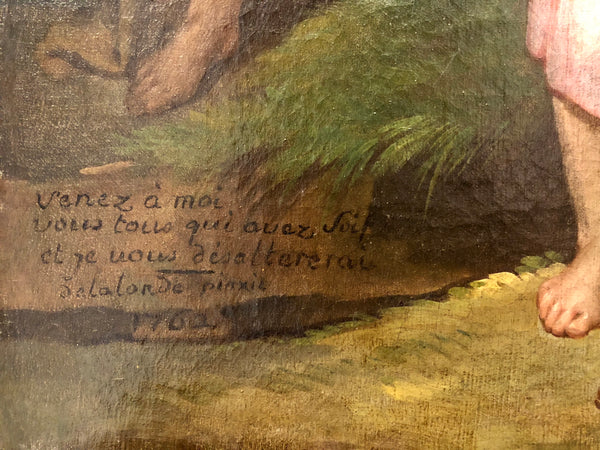 venez à moi
vous tous qui avez soif
et je vous désattererai
Delalonde pinxit
1762